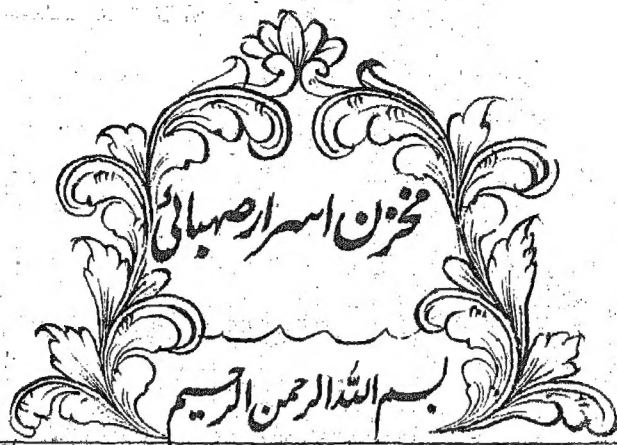 مخزن اسرار صہبائی
بسم اللہ الرحمن الرحیم